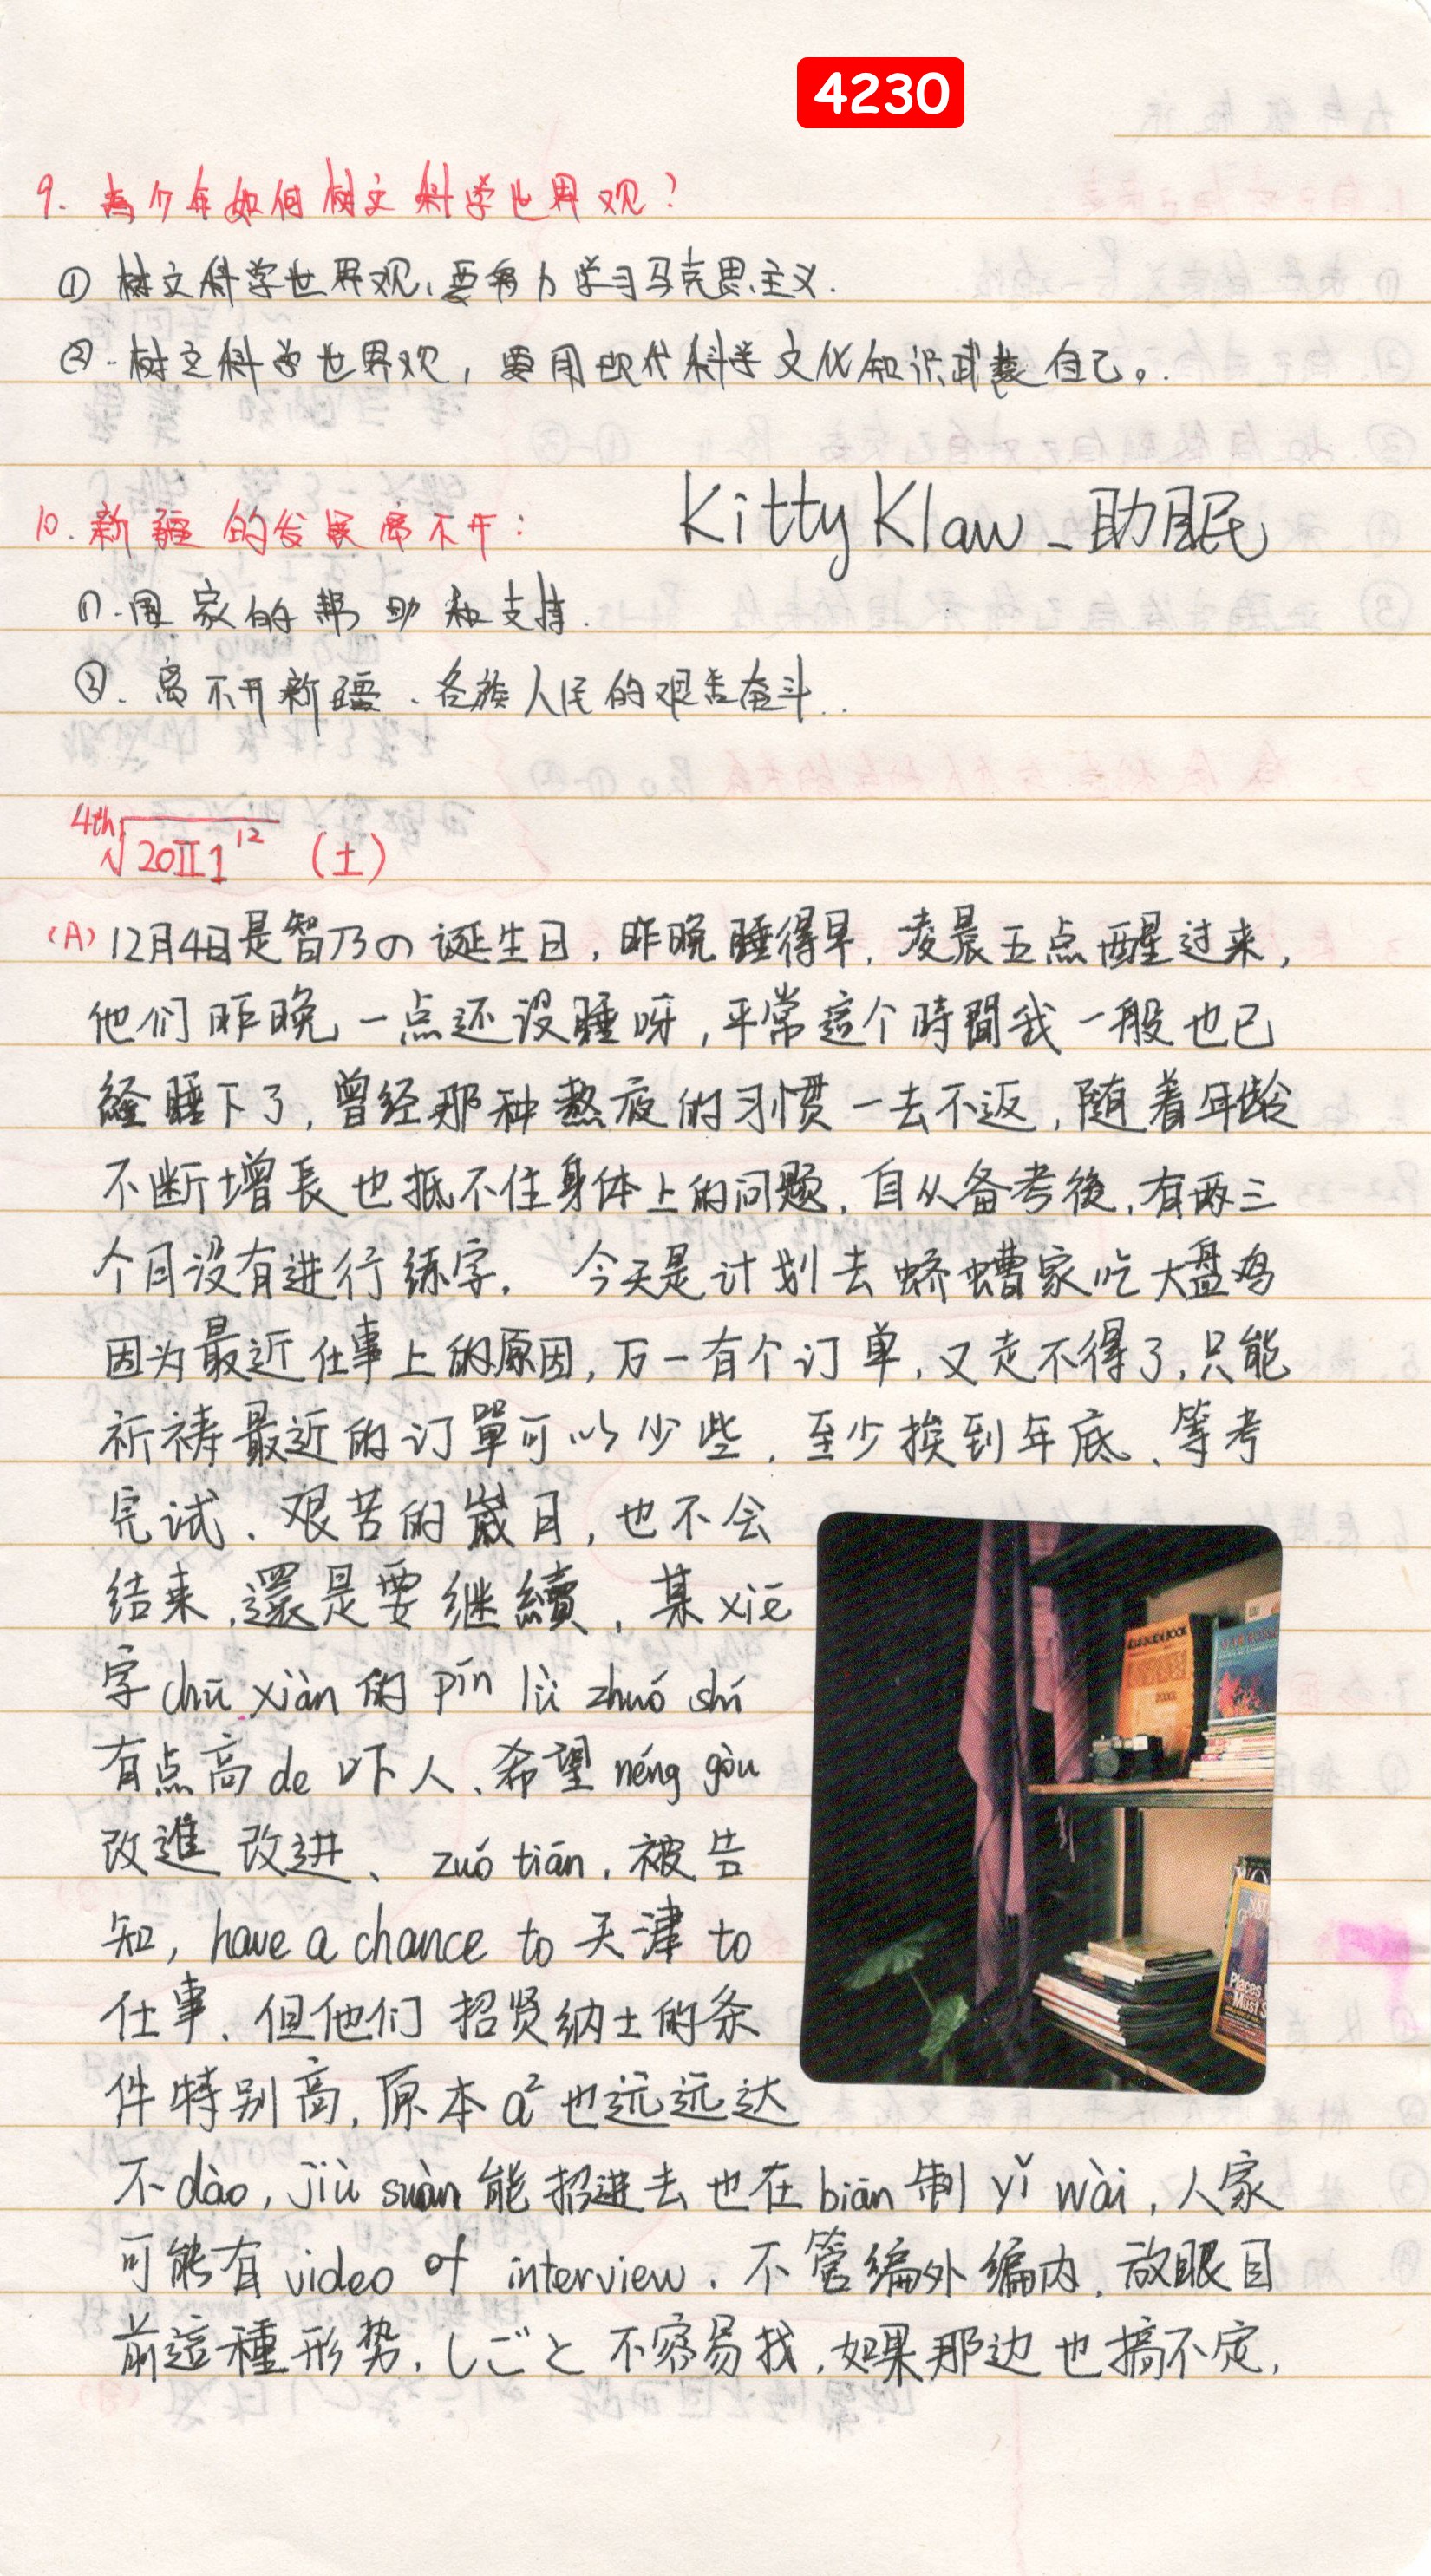 4230
9. 青少年如何树立科学世界观?
① 树立科学世界观,要努力学习马克思主义.
②.树立科学世界观,要用现代科学文化知识武装自己。.
10.新疆的发展离不开:
Kitty Klaw _ 助眠
①.国家的帮助和支持.
②.离不开新疆、各族人民的艰苦奋斗..
4th√20II1^12 (土)
(A) 12月4日是智乃の诞生日,昨晚睡得早,凌晨五点醒过来,
他们昨晚一点还没睡呀,平常這个時間我一般也已
經睡下了,曾经那种熬夜的习惯一去不返,随着年龄
不断增長也抵不住身体上的问题,自从备考後,有两三
个月没有进行练字. 今天是计划去蛴螬家吃大盘鸡
因为最近仕事上的原因,万一有个订单,又走不得了,只能
祈祷最近的订單可以少些.至少挨到年底、等考
完试、艰苦的歲月,也不会
结束,還是要继續,某xiē
字chū xiàn的pín lǜ zhuó shí
有点高de吓人、希望néng gòu
改進 改进、zuó tiān,被告
知, have a chance to 天津 to
仕事、但他们招贤纳士的条
件特别高,原本a²也远远达
不dào, jiù suàn能招进去也在biān制yǐ wài,人家
可能有video of interview.不管编外编内,放眼目
前這種形势,しごと不容易找,如果那边也搞不定,
NAT
GE
Places
Must S